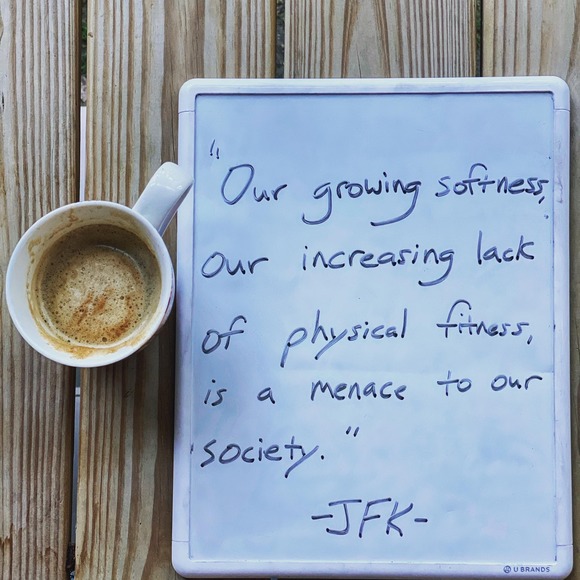 "Our growing softness,
our increasing lack
of physical fitness,
is a menace to our
society."
-JFK-
U BRANDS